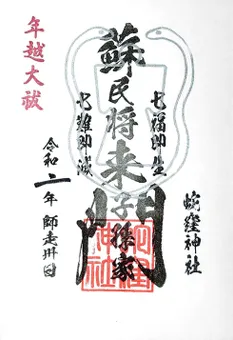 七福即生
蛇窪神社
蘇民将来子孫家門
七難即滅
年越大祓
令和二年 師走